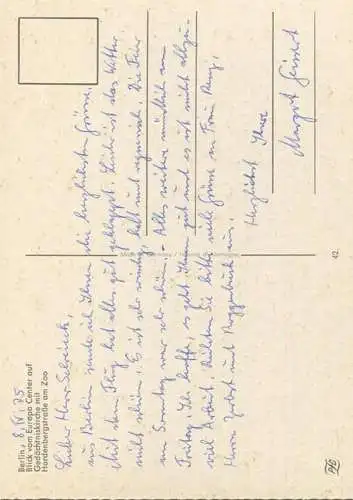 Berlin, 8. IV. 75
Blick vom Europa Center auf
Gedächtniskirche mit
Hardenbergstraße am Zoo
Lieber Herr
aus Berlin sende ich Ihnen die herzlichsten Grüsse.
Mit dem Flug hat alles gut geklappt. Leider ist das Wetter
nicht schön. Es ist sehr windig, kalt und regnerisch. Die Feier
am Sonntag war sehr schön. - Alles weitere mündlich am
Freitag. Ich hoffe, es geht Ihnen gut und es ist nicht allzu-
viel Arbeit. Richten Sie bitte viele Grüsse an Frau
Herrn und aus.
Herzlichst Ihre
Margot
42